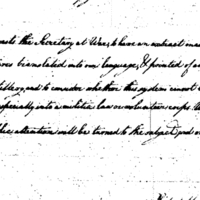 the Secretary at War, to have an extract made
translated into our language, & printed of a
and to consider whether this system cannot
especially into a militia law or volunteer corps.
attention will be turned to the subject, and